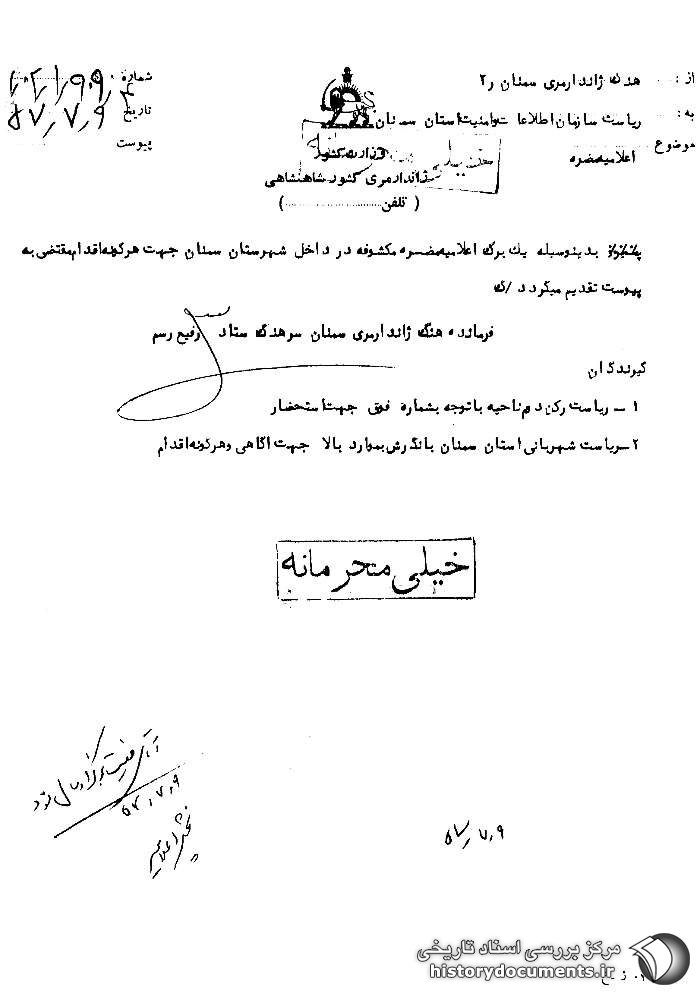 از : هنگ ژاندارمری سمنان ر۲
به : ریاست سازمان اطلاعات و امنیت استان سمنان
موضوع اعلامیه مضره
شماره
تاریخ ۵۷,۷,۹
پیوست
وزارت کشور
ژاندارمری کشور شاهنشاهی
( تلفن .......................... )
خیلی
بدینوسیله یك برگ اعلامیه مضره مکشوفه در داخل شهرستان سمنان جهت هرگونه اقدام مقتضی به
پیوست تقدیم میگردد /ك
فرمانده هنگ ژاندارمری سمنان سرهنگ ستاد رفیع رسم
گیرندگان
۱ ــ ریاست رکن دوم ناحیه با توجه بشماره فوق جهت استحضار
۲ــ ریاست شهربانی استان سمنان بانگرش بموارد بالا جهت آگاهی و هرگونه اقدام
خیلی محرمانه
۵۷,۷,۹
۵۷,۷,۹
مرکز بررسی اسناد تاریخی
historydocuments.ir